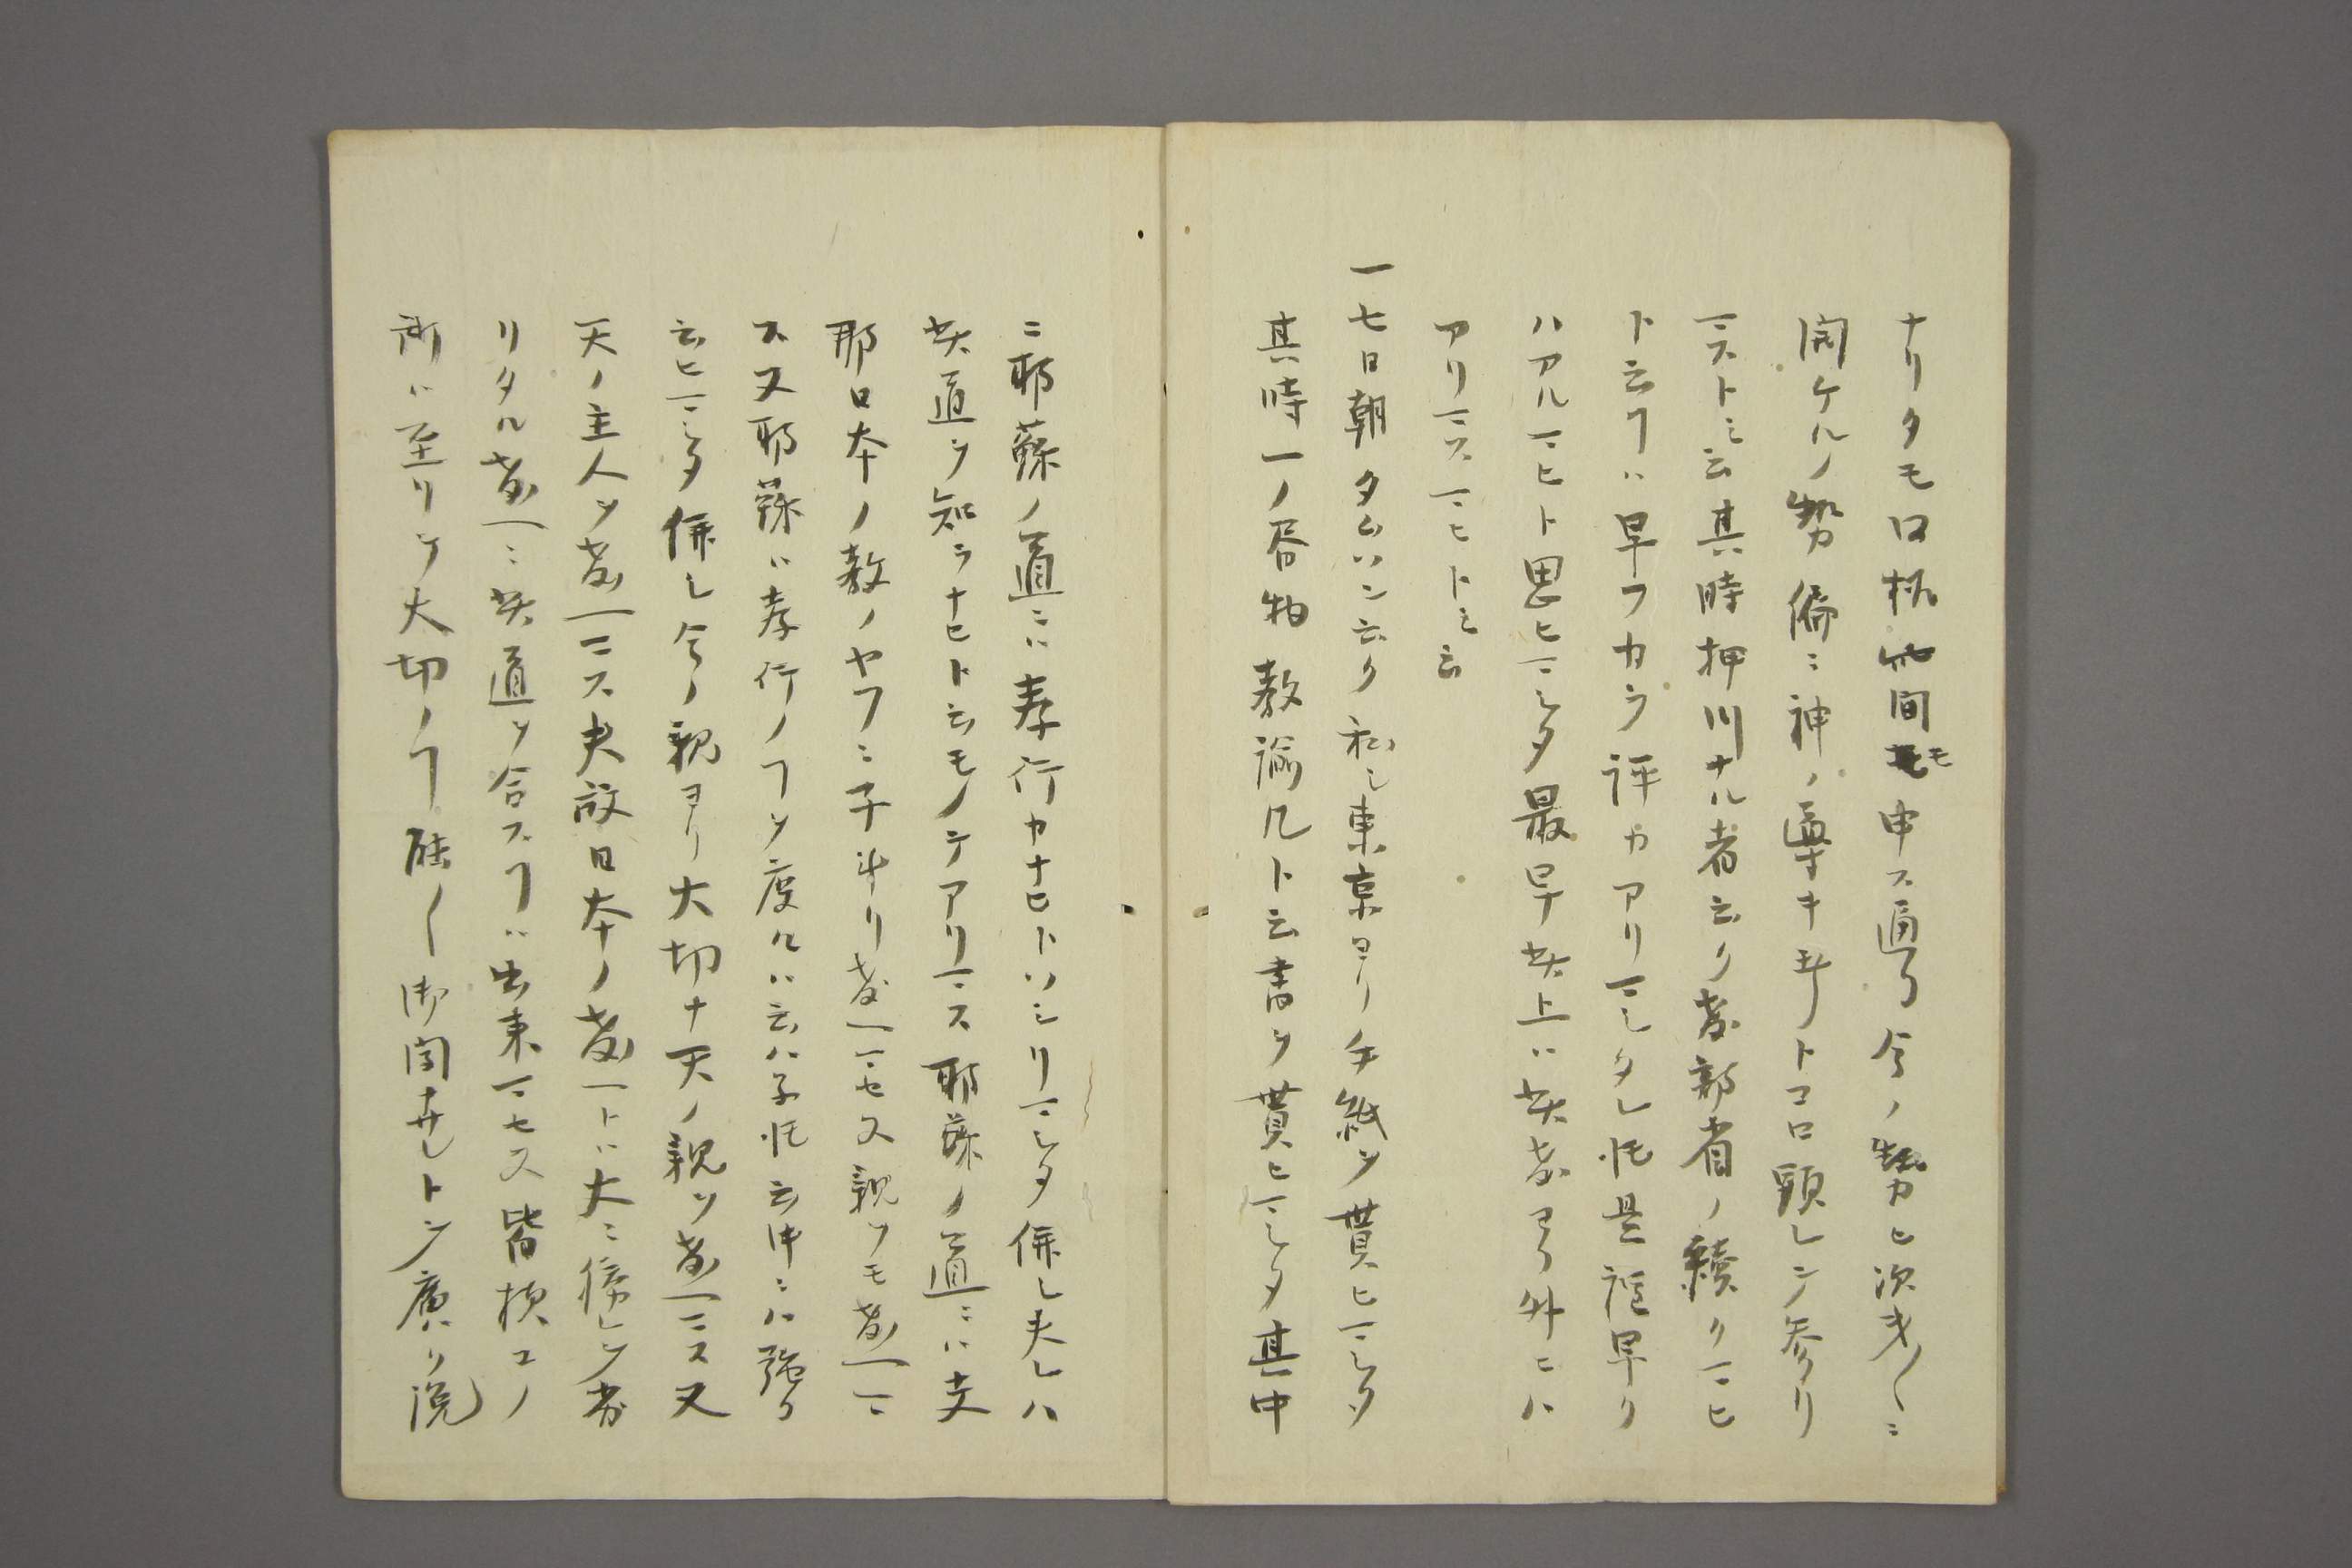 ナリタモロ柄此間モ申ス通リ今ノ勢ヒ次才〱ニ
開ケルノ勢偏ニ神ノ尊キ所トコロ顕レシ参リ
マストミ云其時押川ナル者云ク教部省ノ續クマヒ
ト云フハ早フカラ評カアリマシタレ𪜈是程早ク
ハアルマヒト思ヒマシタ最早其上ハ其教ヨリ外ニハ
アリマスマヒトミ云
一七日朝タムソン云ク私シ東京ヨリ手紙ヲ貰ヒマシタ
其時一ノ沓物教諭凡ト云書ヲ貰ヒマシタ其中
ニ耶蘇ノ道ニハ孝行カナヒトソシリマシタ併シ夫レハ
其道ヲ知ラナヒト云モノテアリマス耶蘇ノ道ニハ支
那日本ノ教ノヤフニ子斗リ敬ヒマセヌ親ヲモ敬ヒマ
ス又耶蘇ハ孝行ノヿヲ度々ハ云ハネ𪜈云中ニハ強ク
云ヒマシタ併シ今ノ親ヨリ大切ナ天ノ親ヲ敬ヒマス又
天ノ主人ヲ敬ヒマス夫故日本ノ敬ヒトハ大ニ
リタル敬ヒニ其道ヲ合スヿハ出来マセス皆様コノ
所ハ至リテ大切ノヿ能〱御聞ナサレトシ廣ク説